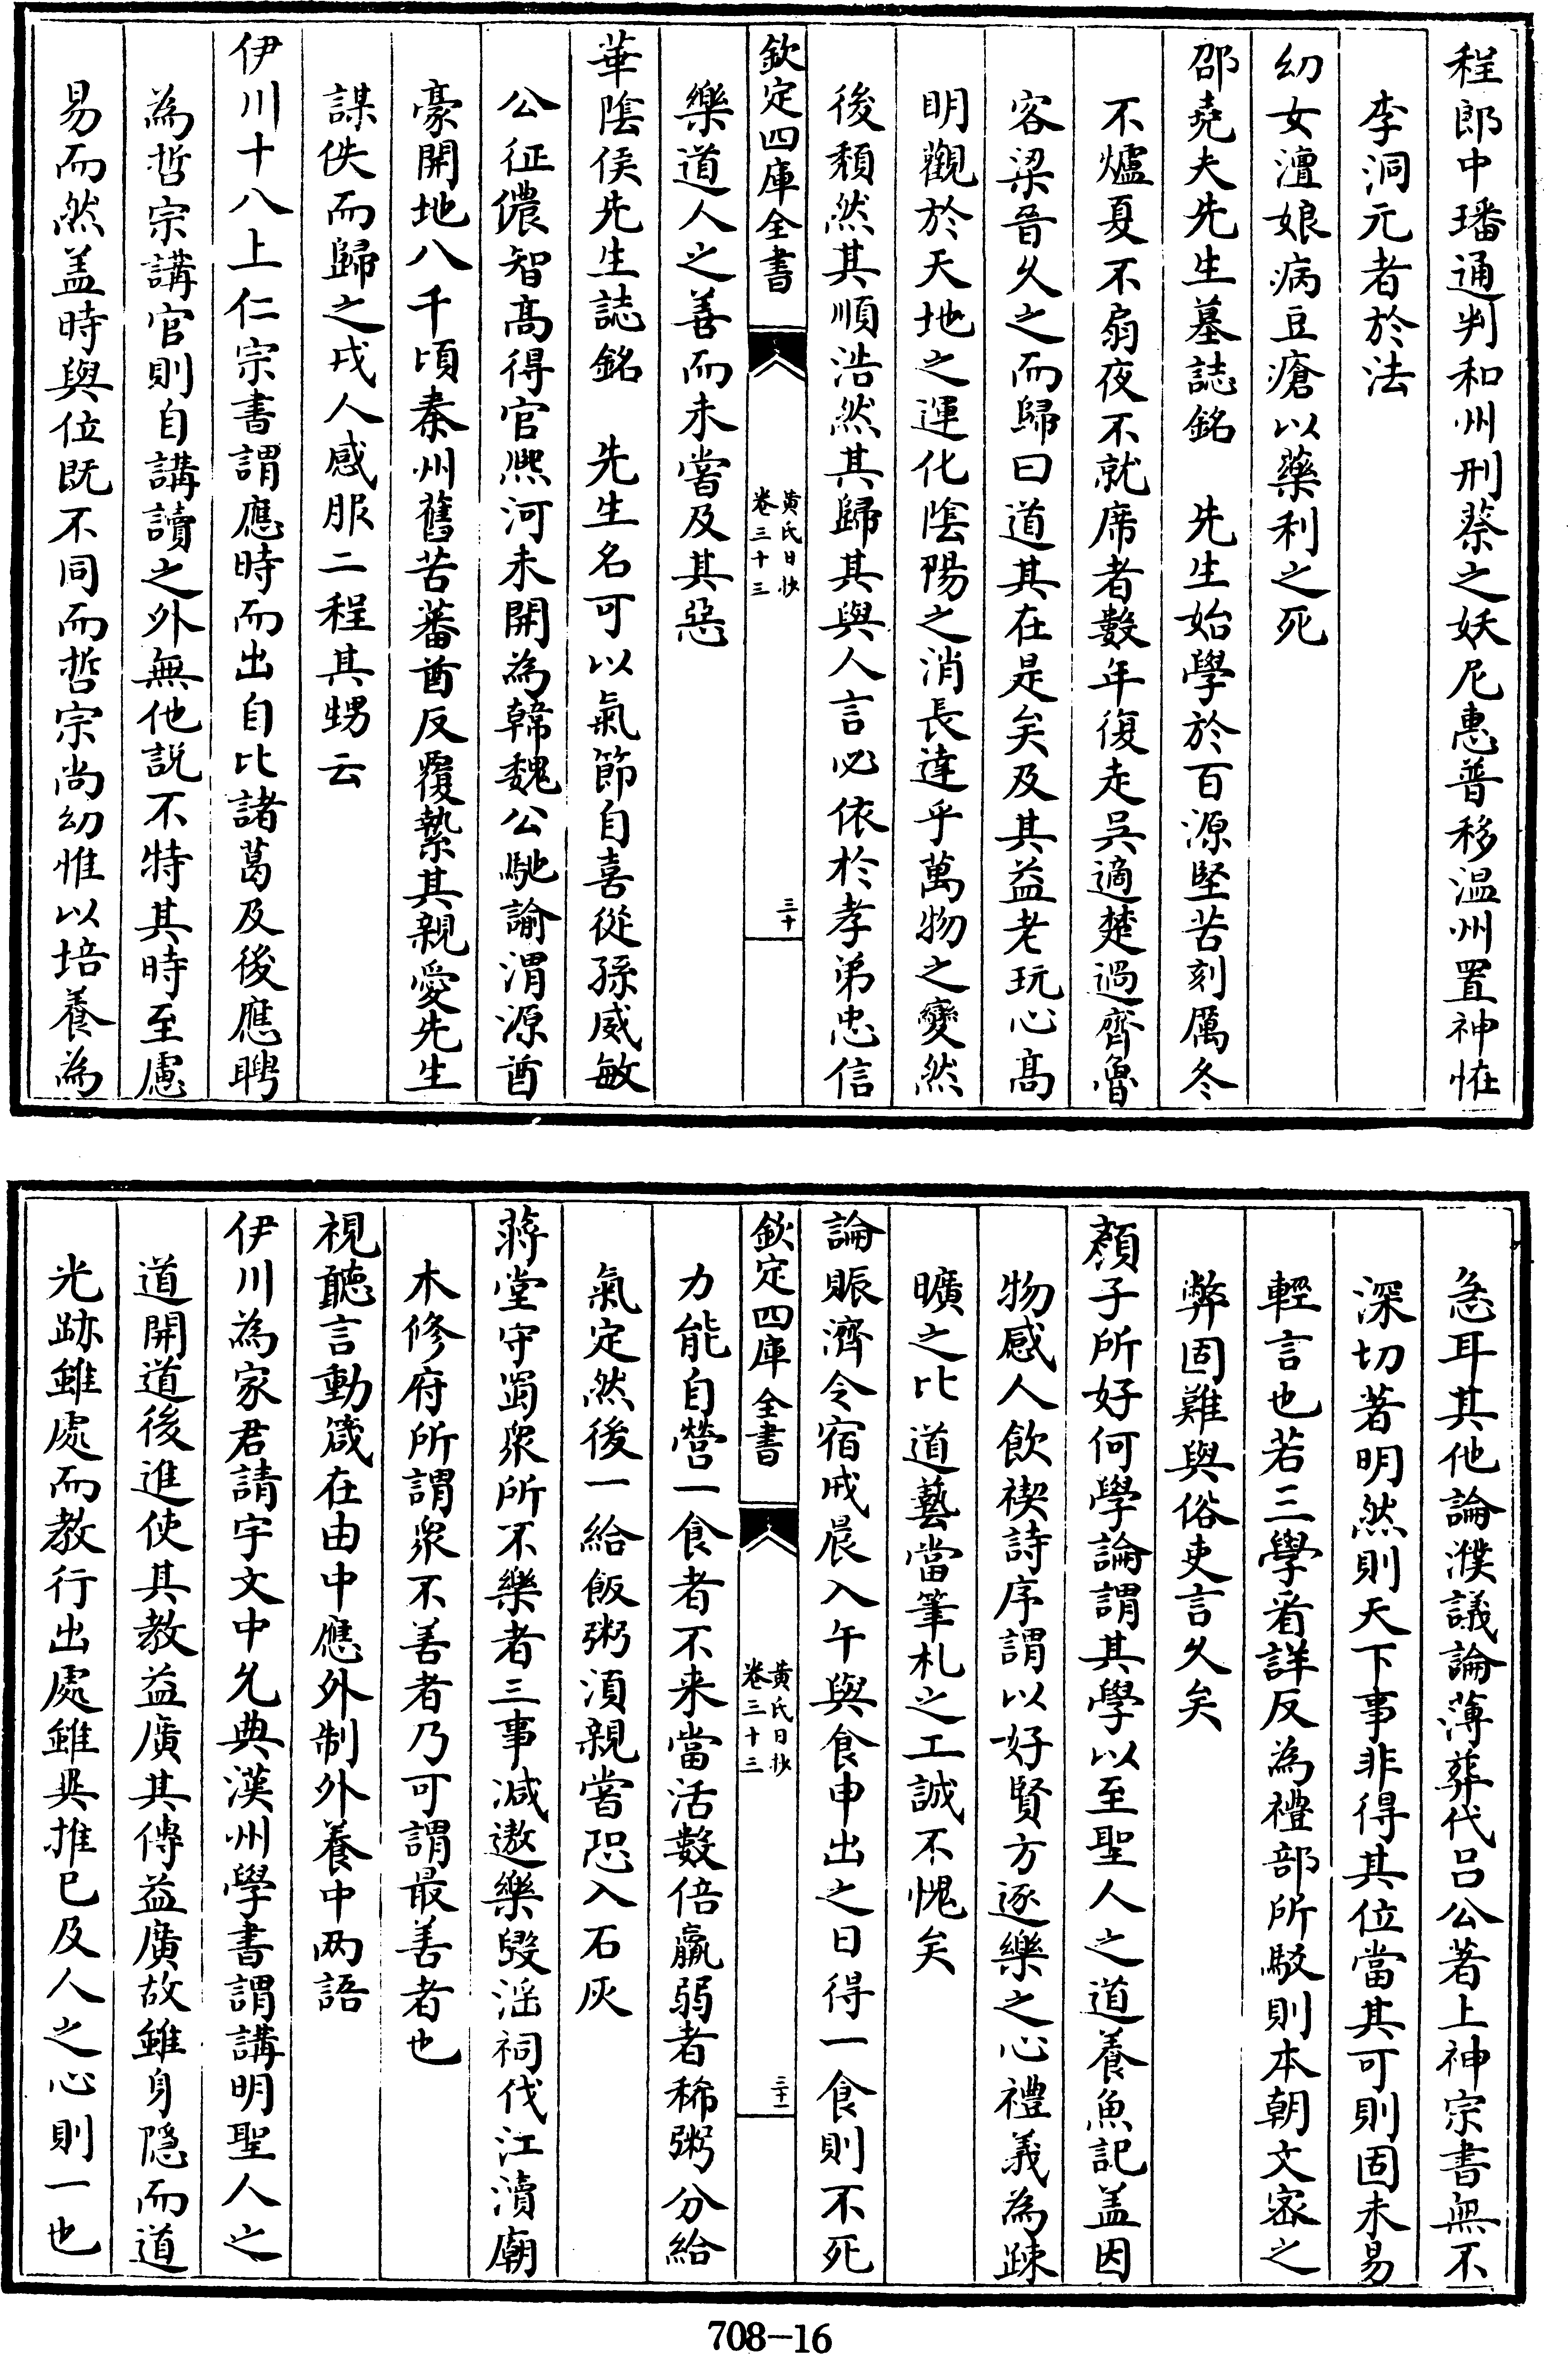 程郎中璠通判和州刑蔡之妖尼惠普移温州置神恠
李洞元者於法
幼女澶娘病豆瘡以藥利之死
邵堯夫先生墓誌銘　先生始學於百源堅苦刻厲冬
不爐夏不扇夜不就席者數年復走吳適楚過齊魯
客梁晉久之而歸曰道其在是矣及其益老玩心髙
明觀於天地之運化陰陽之消長達乎萬物之變然
後頽然其順浩然其歸其與人言必依於孝弟忠信
欽定四庫全書
黄氏日抄
卷三十三
三十
樂道人之善而未嘗及其惡
華陰侯先生誌銘　先生名可以氣節自喜從孫威敏
公征儂智髙得官熈河未開為韓魏公馳諭渭源酋
豪開地八千頃秦州舊苦蕃酋反覆縶其親愛先生
謀佚而歸之戎人感服二程其甥云
伊川十八上仁宗書謂應時而出自比諸葛及後應聘
為哲宗講官則自講讀之外無他説不特其時至慮
易而然盖時與位既不同而哲宗尚幼惟以培養為
急耳其他論濮議論薄葬代吕公著上神宗書無不
深切著明然則天下事非得其位當其可則固未易
輕言也若三學看詳反為禮部所駮則本朝文密之
弊固難與俗吏言久矣
顔子所好何學論謂其學以至聖人之道養魚記盖因
物感人飲禊詩序謂以好賢方逐樂之心禮義為踈
曠之比道藝當筆札之工誠不愧矣
論賑濟令宿戒晨入午與食申出之日得一食則不死
欽定四庫全書
黄氏日抄
卷三十三
三十一
力能自營一食者不来當活數倍羸弱者稀粥分給
氣定然後一給飯粥湏親嘗恐入石灰
蔣堂守蜀衆所不樂者三事减遨樂毁滛祠伐江瀆廟
木修府所謂衆不善者乃可謂最善者也
視聽言動箴在由中應外制外養中两語
伊川為家君請宇文中允典漢州學書謂講明聖人之
道開道後進使其教益廣其傳益廣故雖身隱而道
光跡雖處而教行出處雖異推已及人之心則一也
708-16